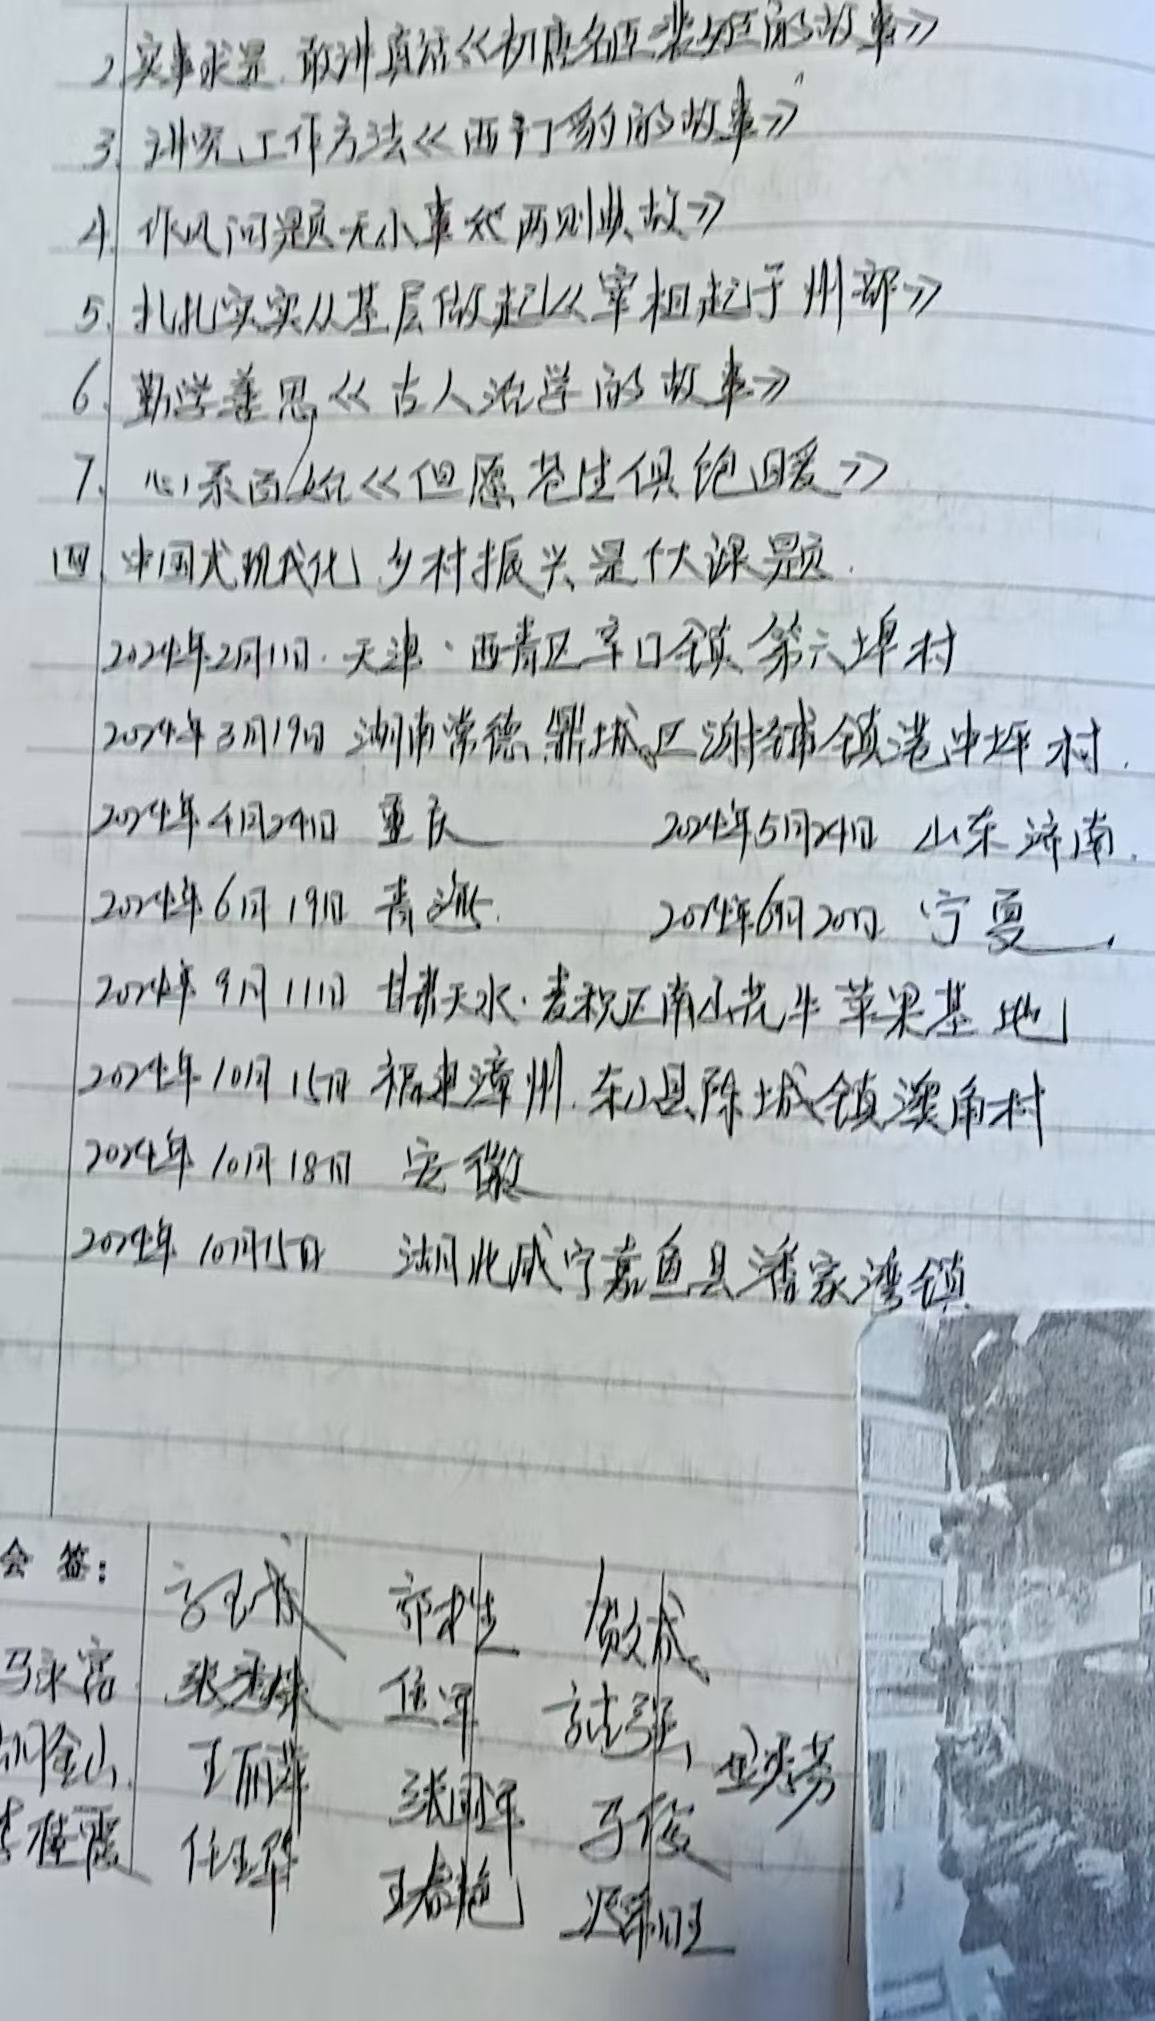 2. 实事求是.敢讲真话《初唐名臣裴矩的故事》
3. 讲究工作方法《西门豹的故事》
4. 作风问题无小事《两则典故》
5. 扎扎实实从基层做起《宰相起于州部》
6. 勤学善思《古人治学的故事》
7. 心系百姓《但愿苍生俱饱暖》
四 中国式现代化.乡村振兴是个大课题.
2024年2月1日.天津·西青区辛口镇第六埠村
2024年3月19日 湖南常德.鼎城区谢家铺镇港中坪村.
2024年4月24日 重庆 2024年5月24日 山东济南.
2024年6月19日 青海. 2024年6月20日 宁夏
2024年9月11日 甘肃天水·麦积区南山花牛苹果基地
2024年10月15日 福建漳州.东山县陈城镇澳角村
2024年10月18日 安徽
2024年10月15日 湖北咸宁嘉鱼县潘家湾镇
会签:
马永富
金山 王丽萍 张国军 马俊
桂霞 任玉华 王春艳